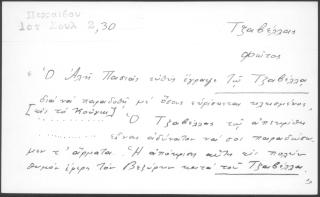 Περραιβου
Ιστ Σουλ 2,30
Τζαβέλλας
Φώτος
Ὁ Ἀλῆ Πασιάς εὐθύς ἔγραψε τῷ Τζαβέλλα
διά νά παραδοθῇ μέ ὅσους εὑρίσκεται κλεισμένος
[εἰς τό Κούγκι] Ὁ Τζαβέλλας τῷ ἀπεκρίθη
εἶναι ἀδύνατον νά σοί παραδώσω
μεν τ' ἄρματα. Ἡ ἀπόκρισις αὕτη εἰς πολύν
θυμόν ἔφερε τόν Βεζύρην κατά τοῦ Τζαβέλλα